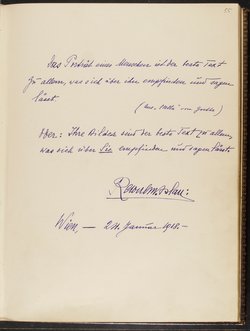 55
Das Porträt eines Menschen ist der beste Text
zu allem, was sich über ihn empfinden und sagen
lässt
(aus "Stella" von Goethe)
Oder: Ihre Bilder sind der beste Text zu allem,
was sich über Sie empfinden und sagen lässt.
Wien, — 24. Januar 1918.—